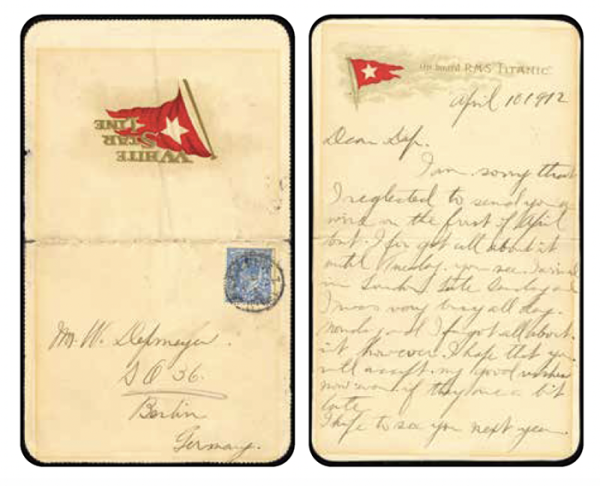 WHITE
STAR
LINE
Mr. W.
S O 36.
Berlin
Germany.
On board R.M.S. TITANIC.
April 10 1912
Dear Dep.
I am sorry that
I neglected to send you a
wire on the first of April
but I forgot all about it
until Tuesday. you see I arrived
in London late Sunday and
I was very busy all day
Monday and I forgot all about
it however I hope that you
will accept my good wishes
now even if they are a bit
late
I hope to see you next year.